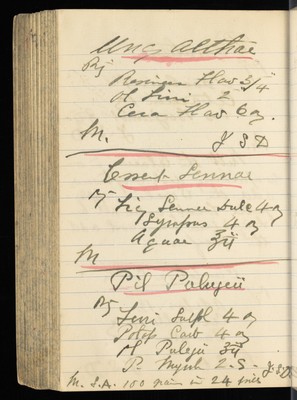 Ung Altháe
℞
Resinae Flav ℥/4
Ol Lini 2
Cera Flav 6 oz.
M. J S D
Essent Sennae
℞ Liq Sennae Dulc 4 oz
Syrupus 4 oz
Aquae ℥ii
M
Pil Pulegii
℞
Ferri Sulph 4 oz
Potass Carb 4 oz
Ol Pulegii ℥ii
P. Myrrh Q.S. J.S.D
M. S.A. 100 grain in 24 pills